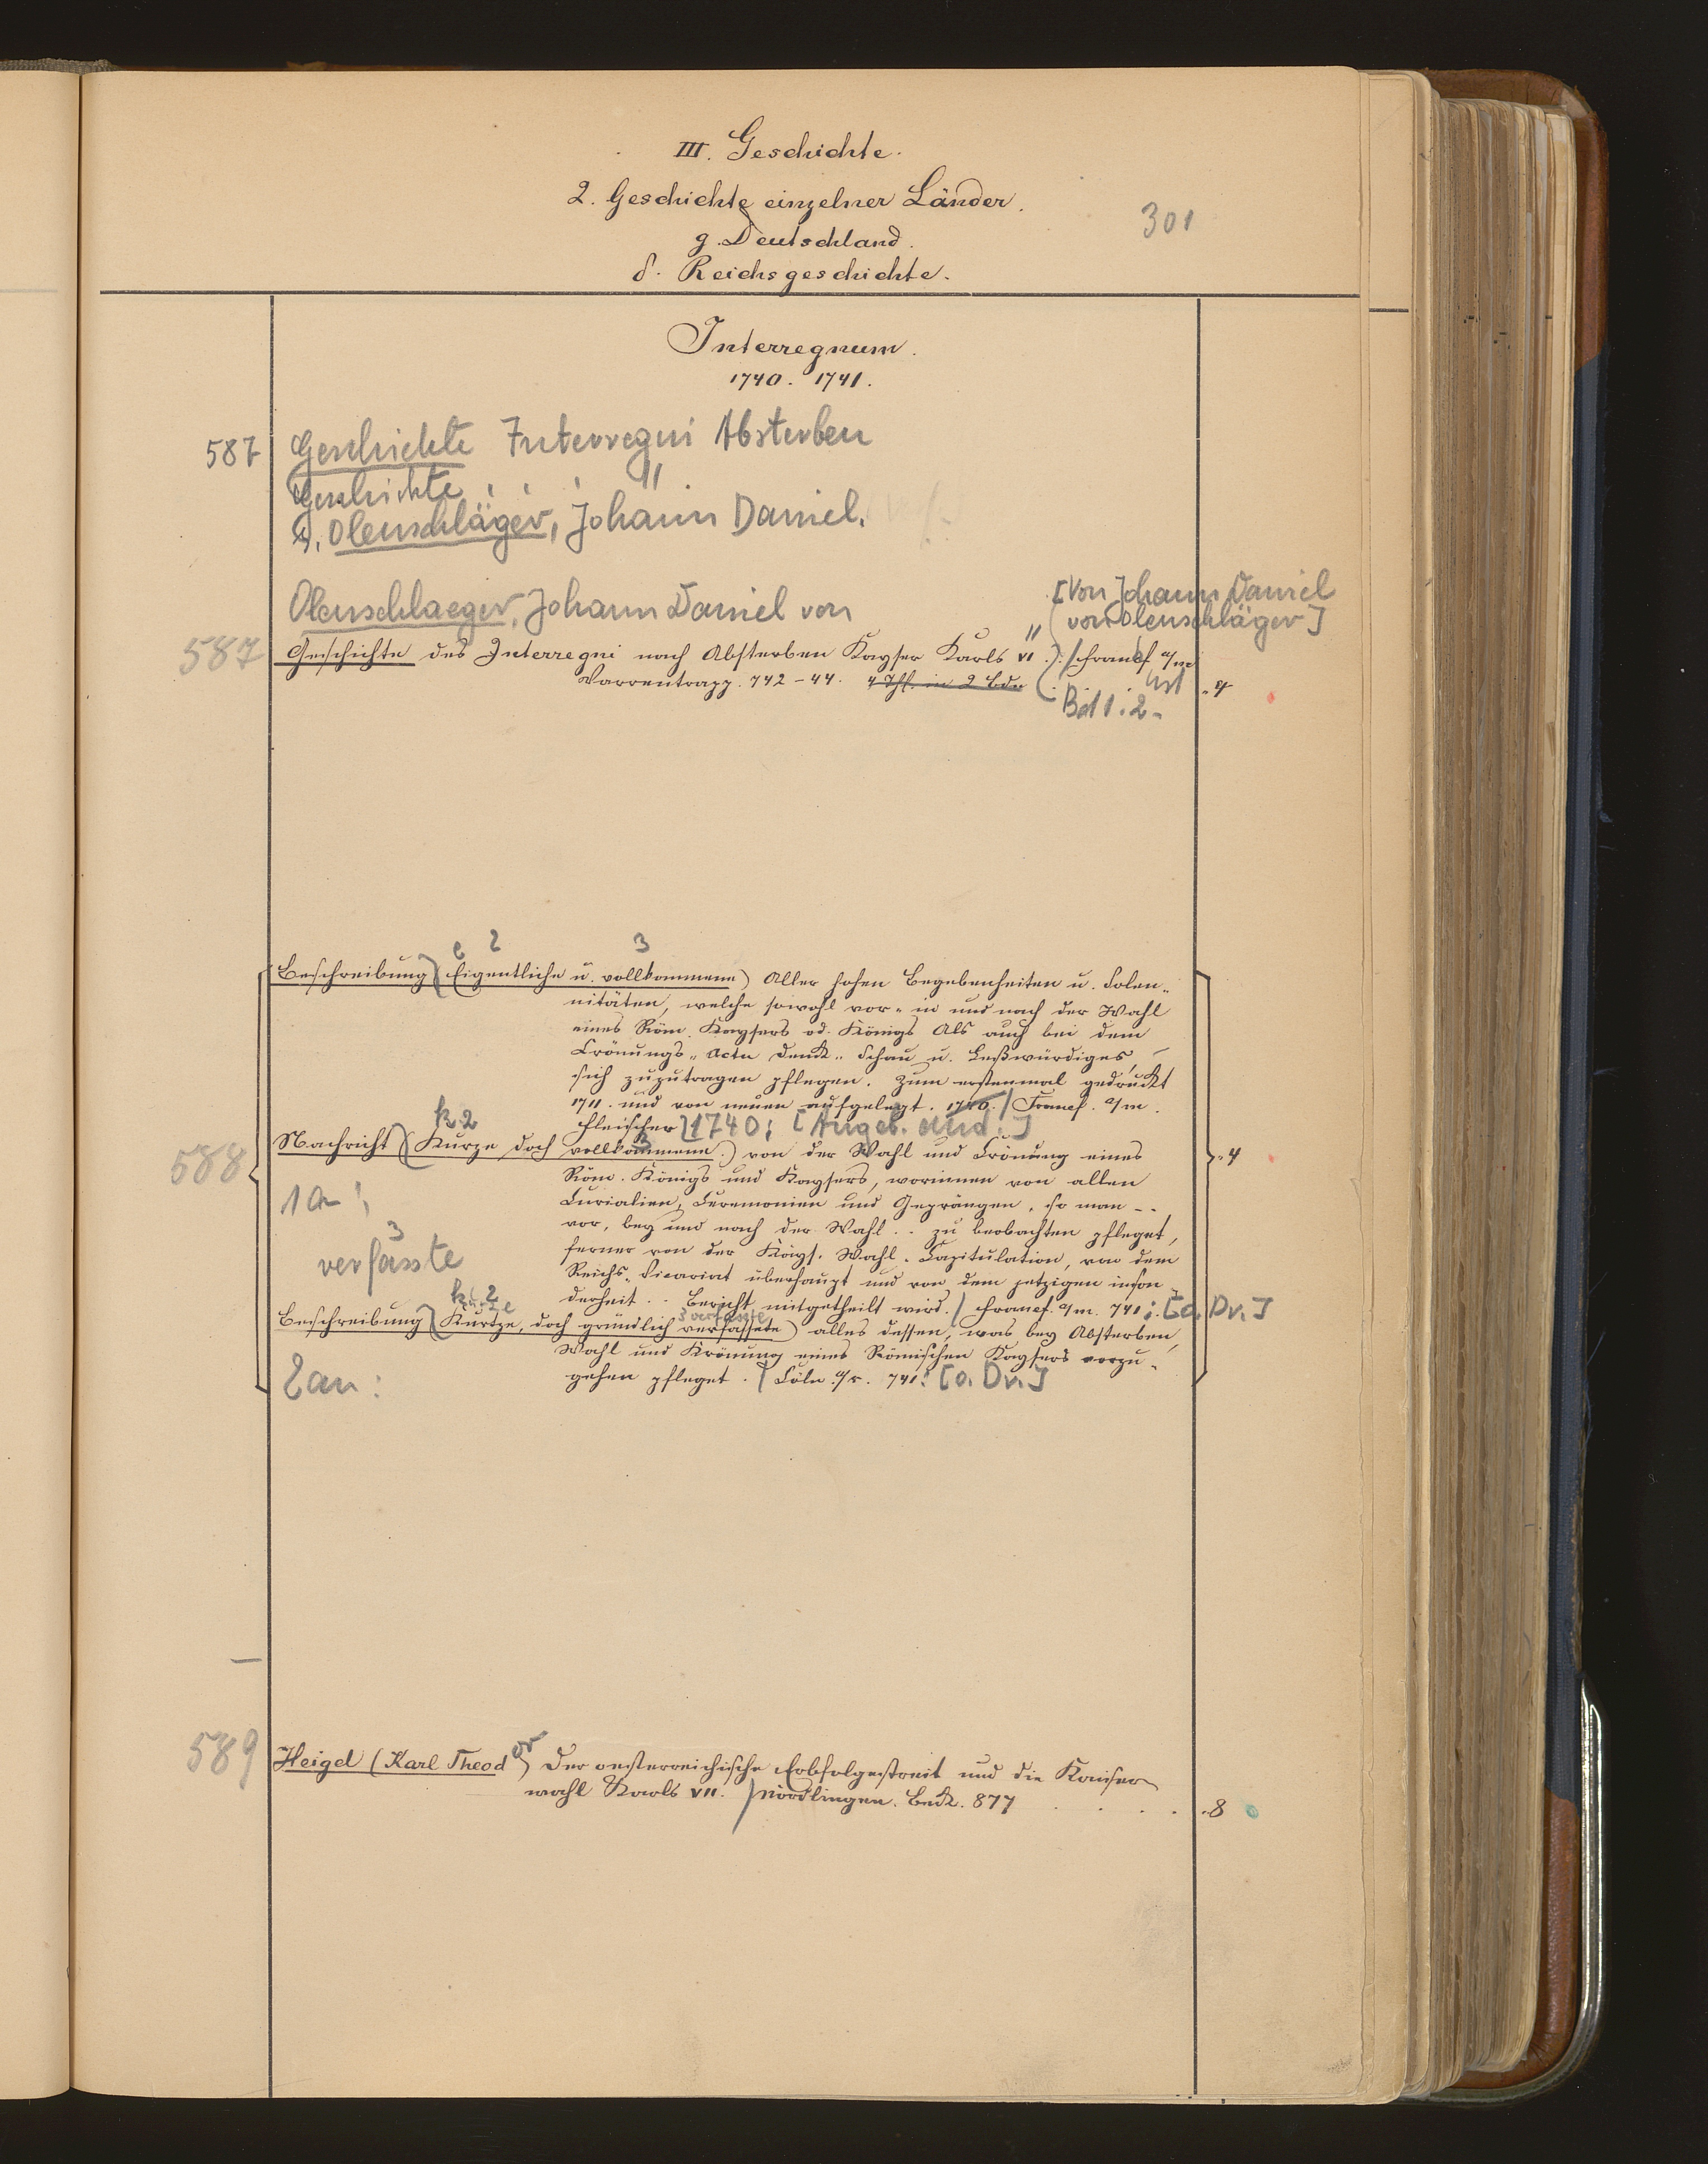 III. Geschichte.
2. Geschichte einzelner Länder.
g. Deutschland.
301
δ. Reichsgeschichte.
Interregnum.
1740. 1741.
587 Geschichte Interregni Absterben
Geschichte . . . "
s. Olenschläger, Johann Daniel.
Olenschlaeger, Johann Daniel von
[Von Johann Daniel
von Olenschläger]
587 Geschichte des Interregni nach Absterben Kayser Karls VI. Frankf. a/m
Varrentrapp. 742-44. 4 Thl. in 2 Bdn . 4
Bd 1. 2.
e 2 3
Beschreibung (Eigentliche u. vollkommene) Aller hohen Begebenheiten u. Solen-
nitäten, welche sowohl vor- in und nach der Wahl
eines Röm. Kaysers od. Königs Als auch bei dem
Crönungs-Actu Denck- Schau u. Leßwürdiges,
sich zuzutragen pflegen. Zum erstenmal gedruckt
1711. und von neuen aufgelegt. 1740. Francf. a/m.
Fleischer 1740; [Angeb. sind:]
k 2
3
588 Nachricht (Kurze doch vollkommene.) von der Wahl und Crönung eines 4
Röm. Königs und Kaysers, worinnen von allen
1 an:
Curialien, Ceremonien und Geprängen, so man --
vor, bey und nach der Wahl .. zu beobachten pfleget,
3
verfasste
ferner von der Köngl. Wahl-Capitulation, von dem
Reichs-Vicariat überhaupt und von dem jetzigen inson
derheit .. Bericht mitgetheilt wird. Francf. a/m. 741; [o. Dr.]
k 2
3 verfasste
Beschreibung (Kurtze, doch gründlich verfassete) alles dessen, was bey Absterben,
Wahl und Krönung eines Römischen Kaysers vorzu-
2 an:
gehen pfleget. Cöln a/r. 741: [o. Dr.]
589 Heigel (Karl Theodor) Der oesterreichische Erbfolgestreit und die Kaiser
wahl Karls VII. Nördlingen. Beck. 877 . . . . 8